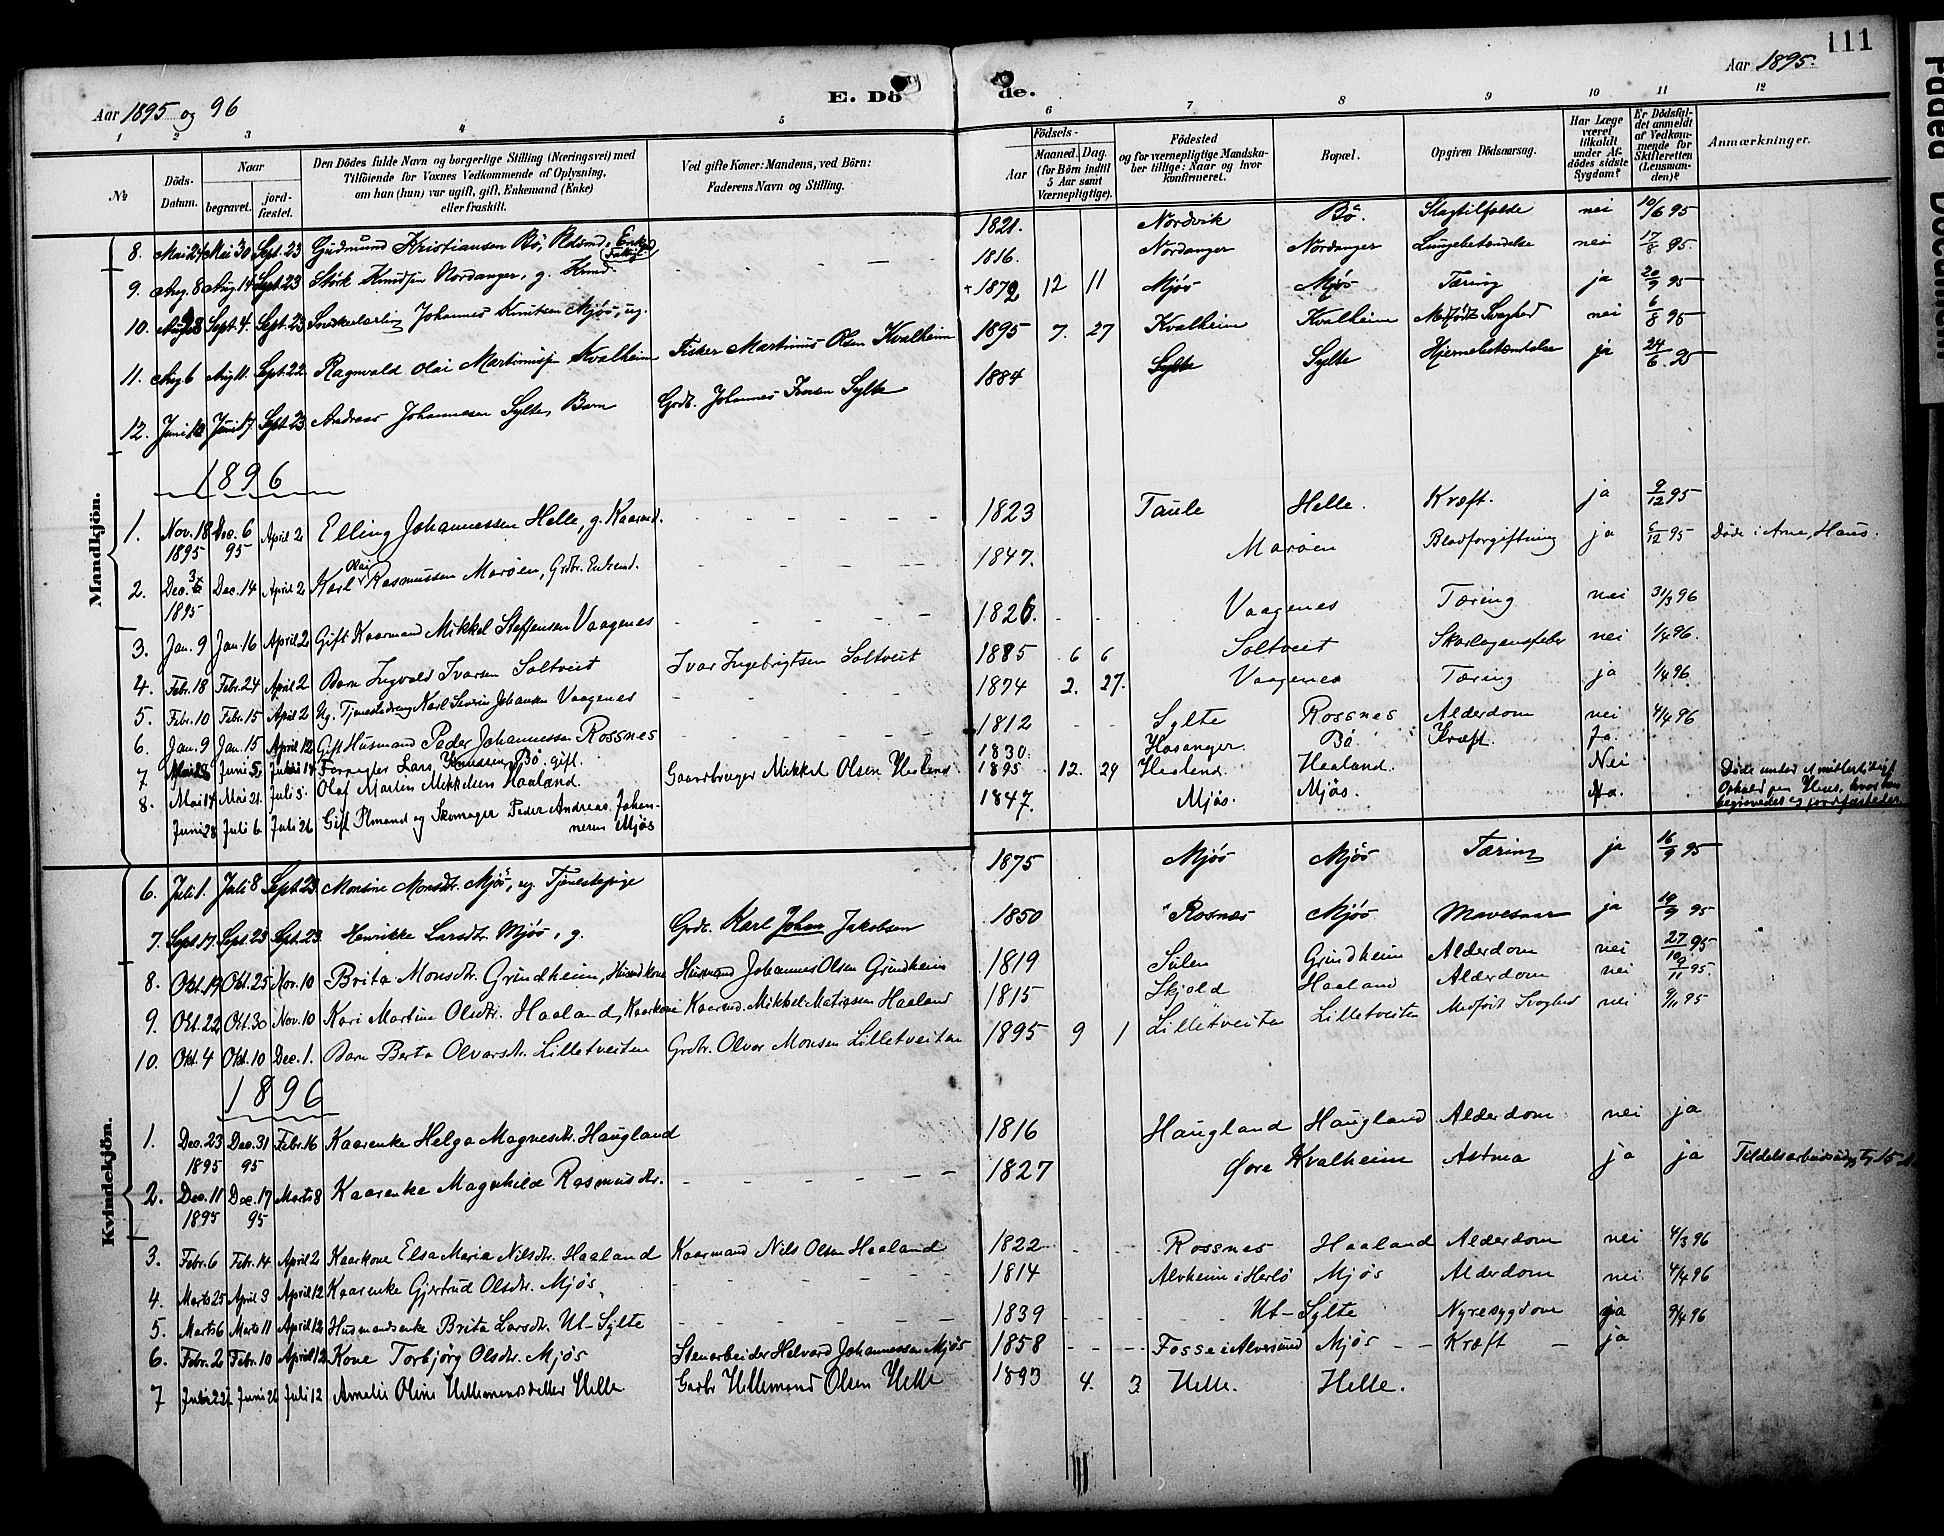 111
Aar 1895 og 96
E. Dö
de.
Aar 1895.
1 2 3 4 5 6 7 8 9 10 11 12
№
Döds-Datum.
Naar
begravet.
jord-fæstet.
Den Dödes fulde Navn og borgerlige Stilling (Næringsvei) med
Tilföiende for Voxnes Vedkommende af Oplysning,
om han (hun) var ugift, gift, Enkemand (Enke)
eller fraskilt.
Ved gifte Koner: Mandens, ved Börn:
Faderens Navn og Stilling.
Födsels-
Aar
Maaned. Dag.
(for Börn indtil
5 Aar samt
Værnepligtige).
Födested
og for værnepligtige Mandska-
ber tillige: Naar og hvor
konfirmeret.
Bopæl.
Opgiven Dödsaarsag.
Har Læge
været
tilkaldt
under Af-
dödes sidste
Sygdom?
Er Dödsfal-
det anmeldt
af Vedkom-
mende for
Skifteretten
(Lensman-
den)?
Anmærkninger.
Mandkjön.
8. Mai 24 Mai 30 Sept. 23 Gudmund Kristiansen Bö, Enkem. 1821. Nordvik Bö. Slagtilfælde nei 10/6 95
9. Aug. 8 Aug. 14 Sept. 23 Störk Knudsen Nordanger, g. - - - - 1816. Nordanger Nordanger Lungebetændelse nei 17/8 95.
10. Aug. 28 Sept. 4. Sept. 23 Snedkerlærling Johannes Knutsen Mjös, ug. + 1872 12 11 Mjös Mjös Tæring ja 20/9 95
11. Aug 6 Aug 11. Sept. 22 Ragnvald Olai Martinusen Kvalheim Fisker Martinus Olsen Kvalheim 1895 7. 27 Kvalheim Kvalheim Medfödt Svaghed nei 6/8 95
12. Juni 12 Juni 17 Sept. 23 Andreas Johannesen Sylte, Barn Grdb. Johannes Iversen Sylte 1884 Sylte Sylte Hjernebetændelse ja 24/6 95
1896
1. Nov. 18 1895 Dec. 6 95 April 2 Elling Johannessen Helle, g. Kaarmd. - - - - - - 1823 Taule Helle. Kræft. ja 9/12 95
2. Dec. 3 1895 Dec. 14 April 2 Karl Olai Rasmussen Maröen, Grdbr. - - - - - - 1847. Maröen Blodforgiftning ja 6/12 95 Döde i Arne, Haus.
3. Jan. 9 Jan. 16 April 2 Gift Kaarmand Mikkel Steffensen Vaagenes - - - - - - 1826. - - Vaagenes Tæring nei 31/3 96
4. Febr. 18 Febr. 24 April 2 Barn Ingvald Ivarsen Soltveit Ivar Ingebrigtsen Soltveit 1885 6 6 Soltveit Skarlagensfeber nei 1/4 96.
5. Febr. 10 Febr. 15 April 2 Ug. Tjenestedreng Karl Severin Johansen Vaagenes - - - - - - 1874 2. 27. Vaagenes Tæring ja 1/4 96.
6. Jan. 9 Jan. 15 April 12 Gift Husmand Peder Johannessen Rossnes - - - - - - 1812 - - Sylte Rossnes Alderdom nei 4/4 96
7 Mai 28 Juni 5 Juni 14 Lars Knudssen Bö. gift. 1830. Hosanger. Bö. Kræft. Ja.
8. Mai 14 Mai 21. Juli 5. Olaf Martin Mikkelsen Haaland. Gaardbruger Mikkel Olsen Haaland 1895 12. 29 Haaland. Haaland. Nei
Juni 28 Juli 6 Juli 26 Gift Plmand og Skomager Peder Andreas Johan-
nesen Mjös 1847. Mjös. Mjös. Ja. Döde under et midlertidigt
Ophold paa Haus, hvor han
begravedes og jordfæstedes
Kvindekjön.
6. Juli 1. Juli 8 Sept. 23 Monsine Monsdtr. Mjös, ug Tjenestepige 1875 Mjös Mjös Tæring ja 16/9 95
7. Sept. 17. Sept. 23 Sept. 23 Henrikke Larsdtr. Mjös, g. Grdb. Karl Johan Jakobsen 1850 Rosnes Mjös Mavesaar ja 19/9 95
8. Okt. 19 Okt. 25 Nov. 10 Brita Monsdtr. Grindheim, Husmdkone Husmand Johannes Olsen Grindheim 1819 Sulen Grindheim Alderdom nei 27/10 95
9. Okt. 22 Okt. 30 Nov. 10 Kari Martine Olsdtr. Haaland, Kaarkone Kaarmd. Mikkel Matiassen Haaland 1815 Skjold Haaland Alderdom nei 9/11 95.
10. Okt. 4 Okt. 10 Dec. 1. Barn Berta Olvarsdtr. Lilletveiten Grdbr. Olvar Monsen Lilletveiten 1895 9 1 Lilletveiten Lilletveiten Medfödt Svaghed nei 9/11 95
1896
1. Dec. 23 1895 Dec. 31 95 Febr. 16 Kaarenke Helga Magnesdtr. Haugland 1816 Haugland Haugland Alderdom nei ja
2. Dec. 11 1895 Dec. 17 95 Marts 8 Kaarenke Magnhild Rasmusdtr. - - - - - - 1827 Øvre Kvalheim Astma ja ja
3. Febr. 6 Febr. 14 April 2 Kaarkone Elsa Maria Nilsdtr. Haaland Kaarmand Nils Olsen Haaland 1822 - - Rossnes Haaland Alderdom nei 4/3 96
4. Marts 25 April 3 April 12 Kaarenke Gjertrud Olsdtr. Mjös - - - - - - 1814 Alvheim i Herlö Mjös Alderdom nei 4/4 96
5. Marts 6 Marts 11 April 12 Husmandsenke Brita Larsdtr. Ut-Sylte - - - - - - 1839 - - - - Ut-Sylte Nyresygdom ja 9/4 96
6. Febr. 2 Febr. 10 April 12 Kone Torbjörg Olsdtr. Mjös Stenarbeider Helvard Johannessen Mjös 1858 - - - Fosse i Alversund Mjös - - Kræft - ja
7 Juni 22 Juni 26 Juli 12 Amalie Oline Hellemansdatter Helle Gaardbr Hellemand Olsen Helle 1893 4. 3 Helle. Helle.